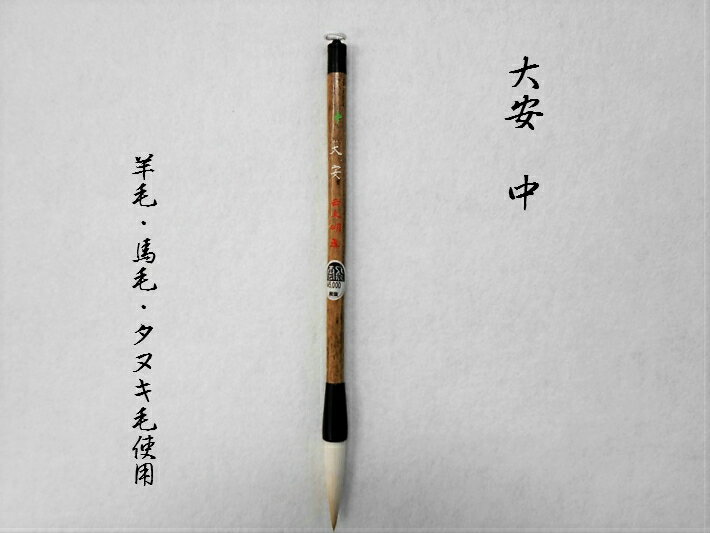 大安 中
中
大安
¥5,000
羊毛・馬毛・タヌキ毛使用